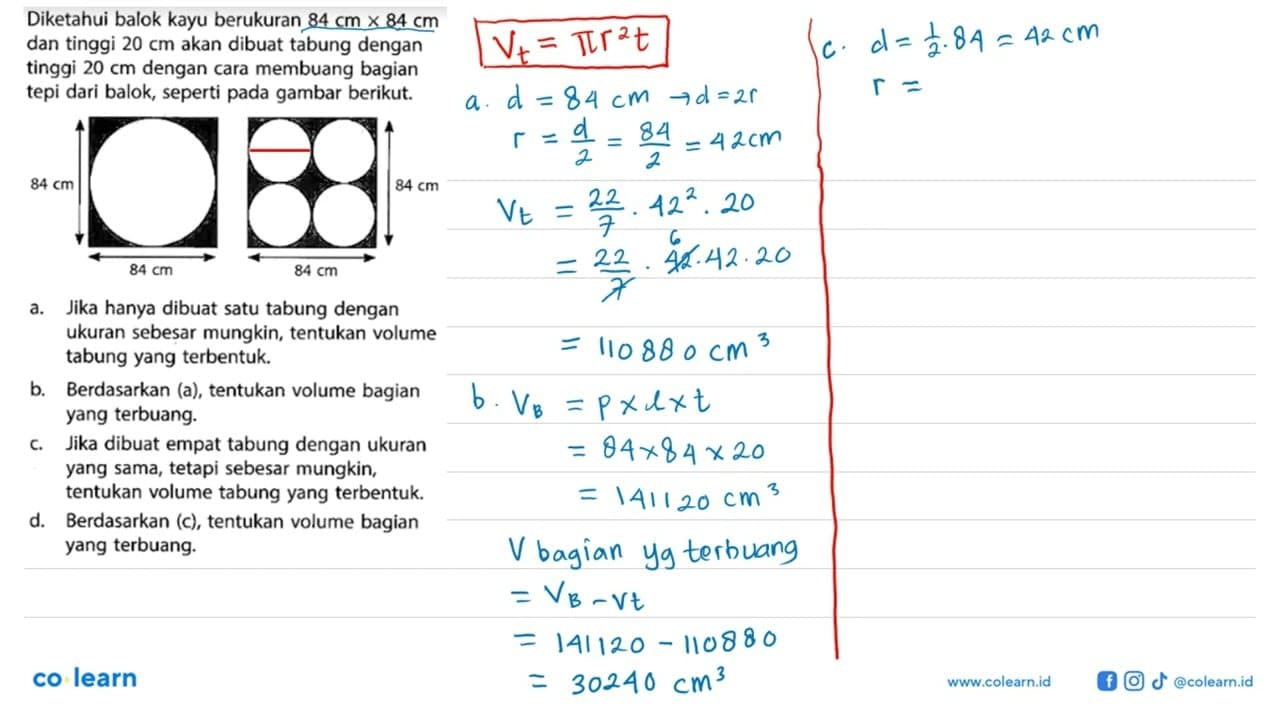 Diketahui balok kayu berukuran 84 cm × 84 cm
dan tinggi 20 cm akan dibuat tabung dengan
tinggi 20 cm dengan cara membuang bagian
tepi dari balok, seperti pada gambar berikut.
84 cm
84 cm
84 cm
84 cm
a. Jika hanya dibuat satu tabung dengan
ukuran sebesar mungkin, tentukan volume
tabung yang terbentuk.
b. Berdasarkan (a), tentukan volume bagian
yang terbuang.
c. Jika dibuat empat tabung dengan ukuran
yang sama, tetapi sebesar mungkin,
tentukan volume tabung yang terbentuk.
d. Berdasarkan (c), tentukan volume bagian
yang terbuang.
Vt = πr²t
a. d = 84 cm → d = 2r
r = d/2 = 84/2 = 42 cm
Vt = 22/7 . 42² . 20
= 22/7 . 42 . 42 . 20
6
= 110880 cm³
b. VB = p × l × t
= 84 × 84 × 20
= 141120 cm³
V bagian yg terbuang
= VB - Vt
= 141120 - 110880
= 30240 cm³
c. d = 1/2 . 84 = 42 cm
r =
co learn
www.colearn.id
@colearn.id